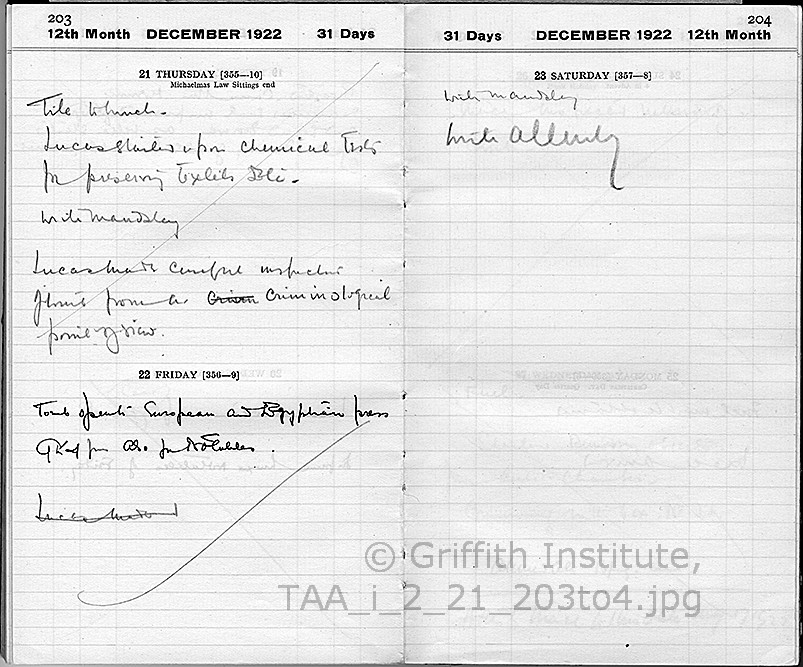 203
12th Month DECEMBER 1922 31 Days
21 THURSDAY [355—10]
Michaelmas Law Sittings end
to lunch.
Lucas started upon chemical Tests
for preserving Textiles &c.
write Maudslay
Lucas made careful inspection
of tomb from a Crim Criminological
point of view.
22 FRIDAY [356—9]
Tomb open to European and Egyptian press
also for Notables.
Lucas made
204
31 Days DECEMBER 1922 12th Month
23 SATURDAY [357—8]
write Maudslay
write Allenby
© Griffith Institute,
TAA_i_2_21_203to4.jpg